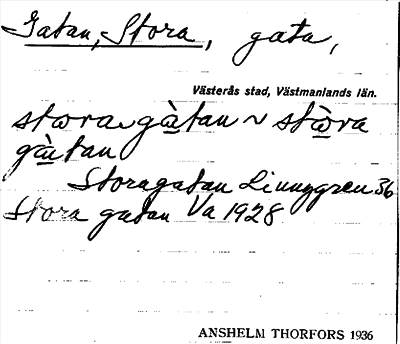 Gatan, Stora, gata,
Västerås stad, Västmanlands län.
stora gàtan ~ stòra
gàtan
Storagatan Linnggren 36
Stora gatan Va 1928
ANSHELM THORFORS 1936